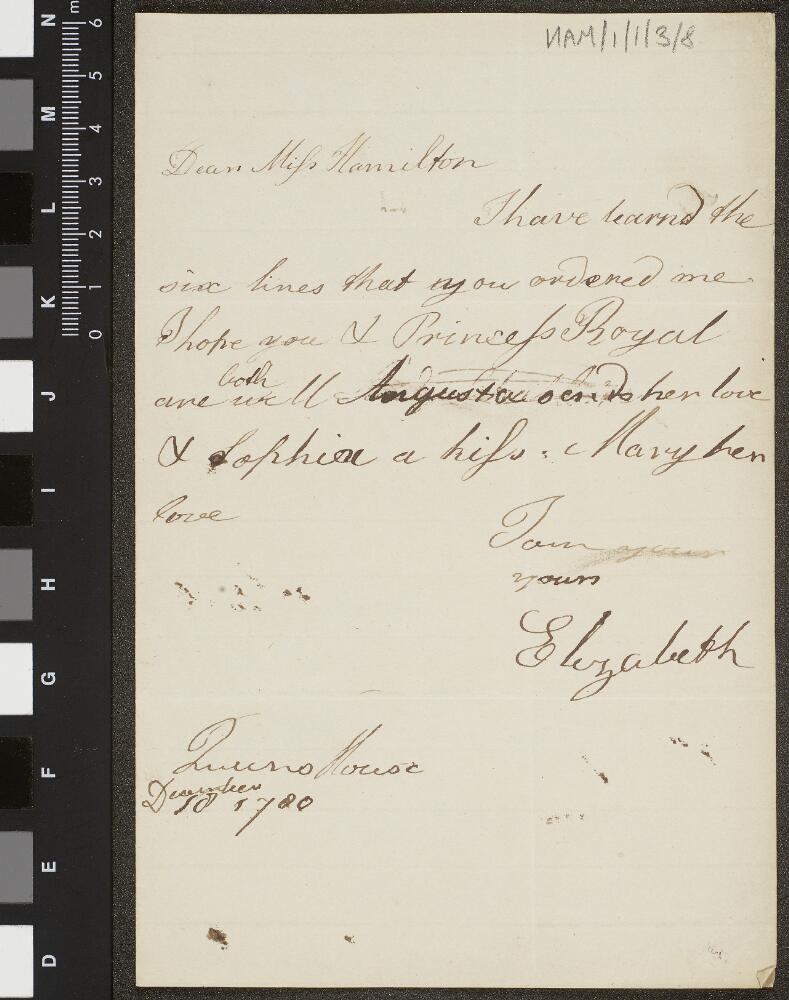 HAM/1/1/3/8
Dear Miſs Hamilton
I have learnd the
six lines that you ordered me
I hope you & Princeſs Royal
are both well Augusta sends her love
& Sophia a kiſs. Mary her
love
I am your
yours
Elizabeth
Queens House
December
18 1780
m
6
5
4
3
2
1
0
N
M
L
K
J
I
H
G
F
E
D